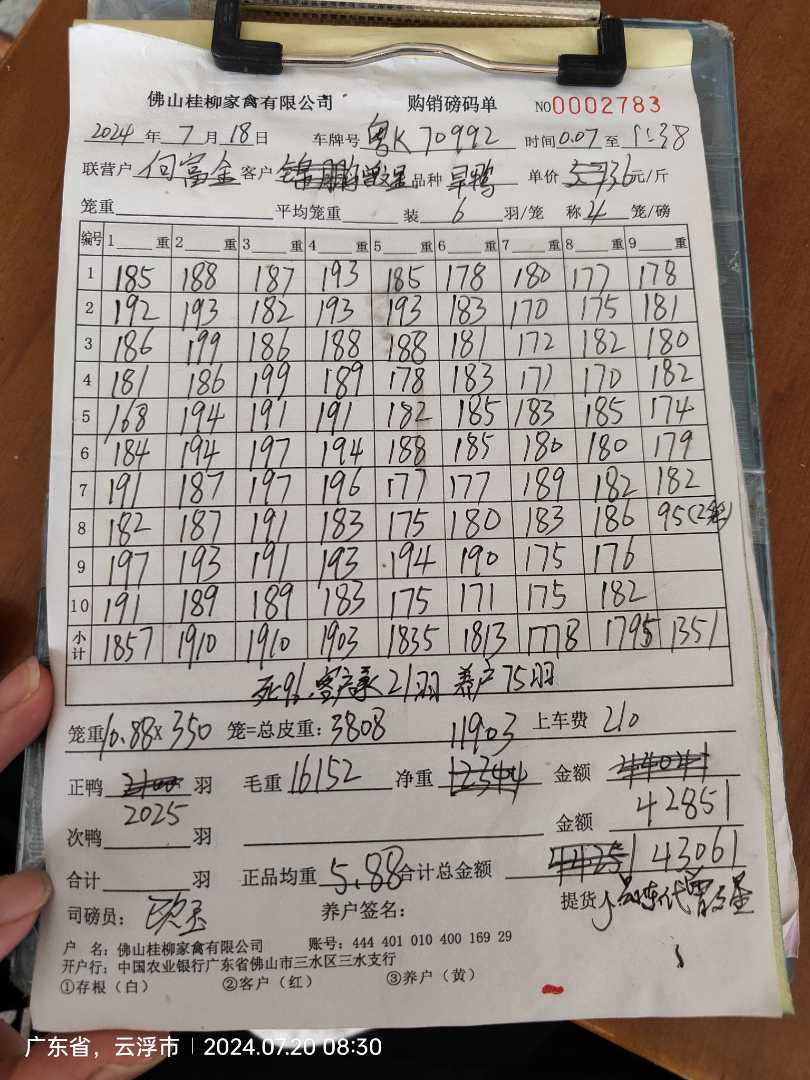 佛山桂柳家禽有限公司 购销磅码单 NO0002783
2024年7月18日 车牌号 粤K70992 时间0.07至1:38
联营户 何富金 客户 品种 旱鸭 单价 3.6元/斤
笼重 平均笼重 装6羽/笼 称4笼/磅
编号 1 重 2 重 3 重 4 重 5 重 6 重 7 重 8 重 9 重
1 185 188 187 193 185 178 180 177 178
2 192 193 182 193 193 183 170 175 181
3 186 199 186 188 188 181 172 182 180
4 181 186 199 189 178 183 171 170 182
5 168 194 191 191 182 185 183 185 174
6 184 194 197 194 188 185 180 180 179
7 191 187 197 196 177 177 189 182 182
8 182 187 191 183 175 180 183 186 95(2笼)
9 197 193 191 193 194 190 175 176
10 191 189 189 183 175 171 175 182
小计 1857 1910 1910 1903 1835 1813 1778 1795 1351
死96,客户承21羽 养户75羽
笼重10.88×350 笼=总皮重:3808 11903 上车费 210
正鸭 2100 羽 毛重 16152 净重 12344 金额
2025 42851
次鸭 羽 金额
合计 羽 正品均重 5.88 合计总金额 44251 43061
司磅员: 养户签名: 提货人
户 名:佛山桂柳家禽有限公司 账号:444 401 010 400 169 29
开户行:中国农业银行广东省佛山市三水区三水支行
①存根(白) ②客户(红) ③养户(黄)
广东省,云浮市 | 2024.07.20 08:30